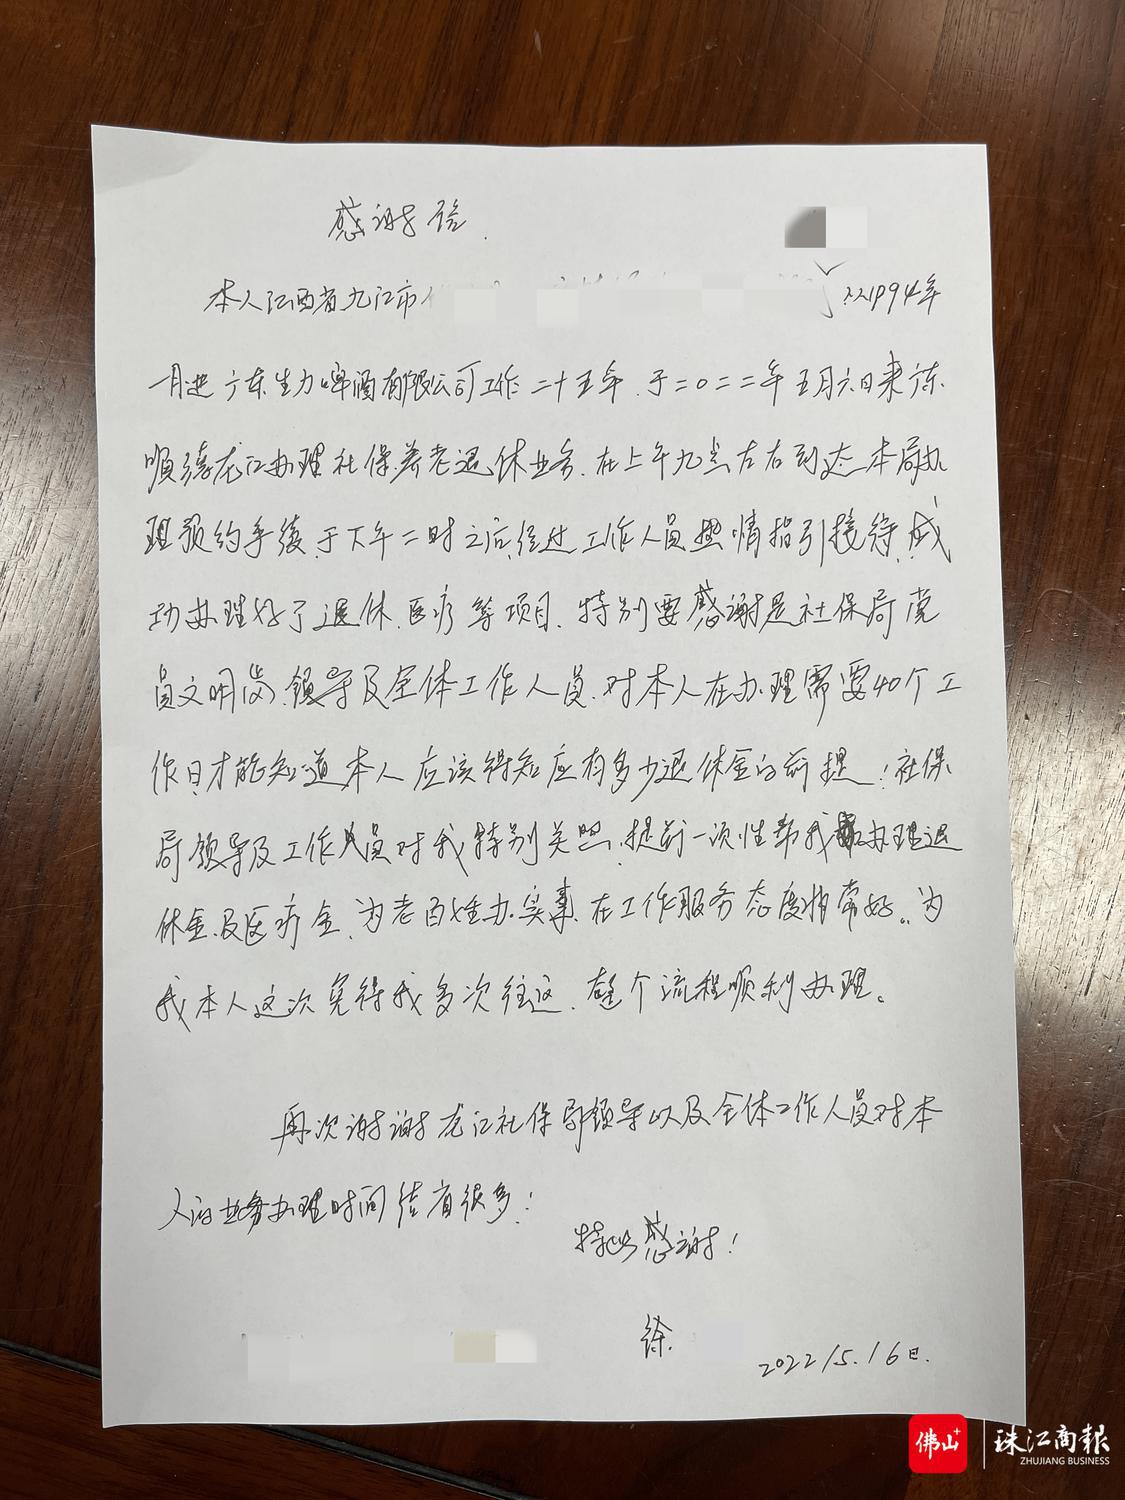 感谢信.
本人江西省九江市 从1994年
一月进广东生力啤酒有限公司工作二十五年.于二〇二二年五月六日来广东.
顺德龙江办理社保养老退休业务.在上午九点左右到达本局办
理预约手续.于下午二时之后,经过工作人员热情指引接待.成
功办理好了退休.医疗等项目.特别要感谢是社保局党
员文明岗.领导及全体工作人员.对本人在办理需要40个工
作日才能知道本人应该得知应有多少退休金的前提!社保
局领导及工作人员对我特别关照.提前一次性帮我办理退
休金及医疗金.为老百姓办实事.在工作服务态度非常好..为
我本人这次免得我多次往返.整个流程顺利办理。
再次谢谢龙江社保局领导以及全体工作人员对本
人的业务办理时间结省很多!
特此感谢!
徐.
2022/5.16日.
佛山+
珠江商報
ZHUJIANG BUSINESS